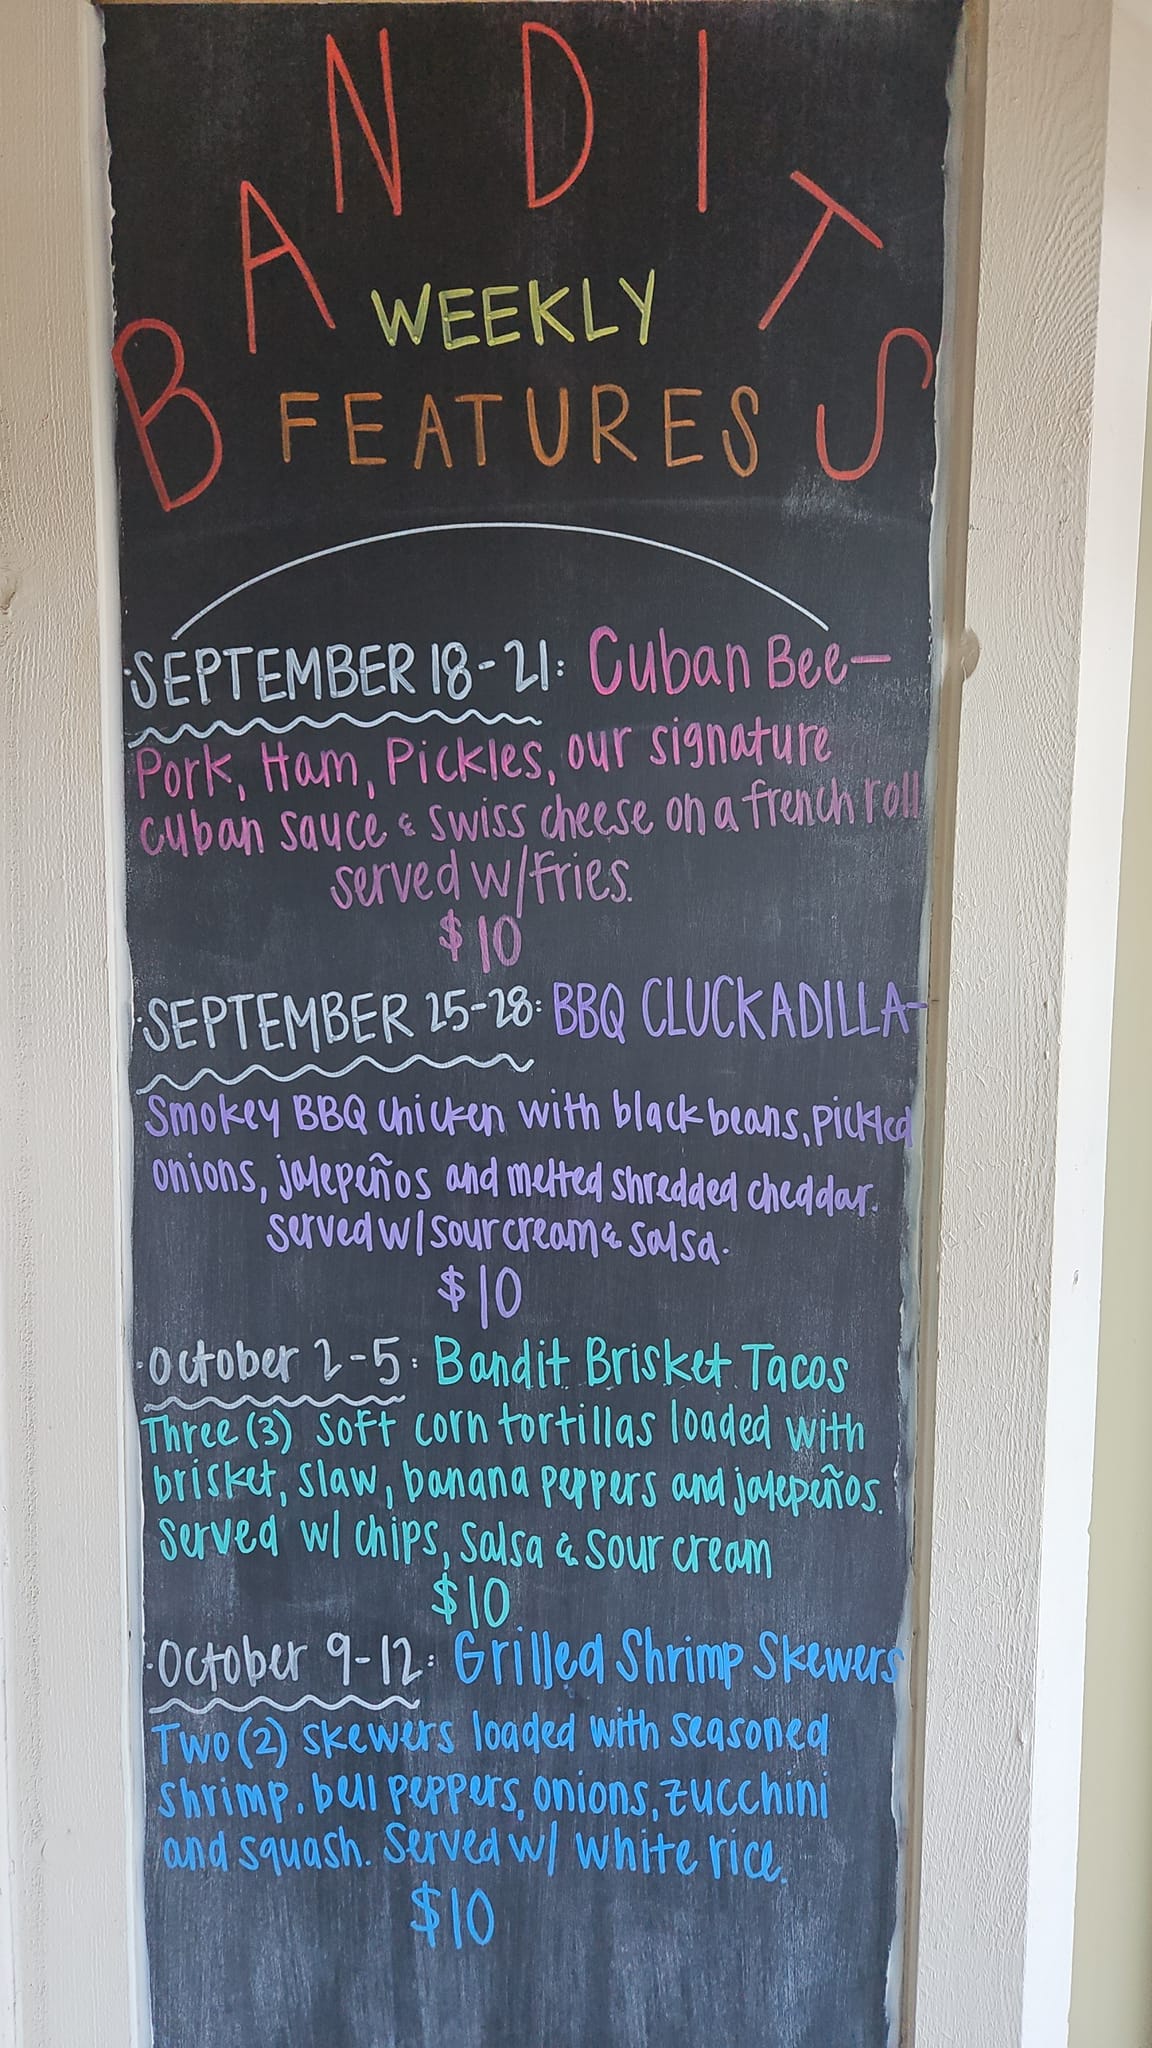 BANDITS
WEEKLY
FEATURES
·SEPTEMBER 18-21: Cuban Bee-
Pork, Ham, Pickles, our signature
cuban sauce & swiss cheese on a french roll
served w/fries.
$10
·SEPTEMBER 25-28: BBQ CLUCKADILLA-
Smokey BBQ chicken with black beans, pickled
onions, jalepeños and melted shredded cheddar.
Served w/ sour cream & salsa.
$10
·October 2-5: Bandit Brisket Tacos
Three (3) soft corn tortillas loaded with
brisket, slaw, banana peppers and jalepeños.
Served w/ chips, salsa & sour cream
$10
·October 9-12: Grilled Shrimp Skewers
Two (2) skewers loaded with seasoned
shrimp, bell peppers, onions, zucchini
and squash. Served w/ white rice.
$10